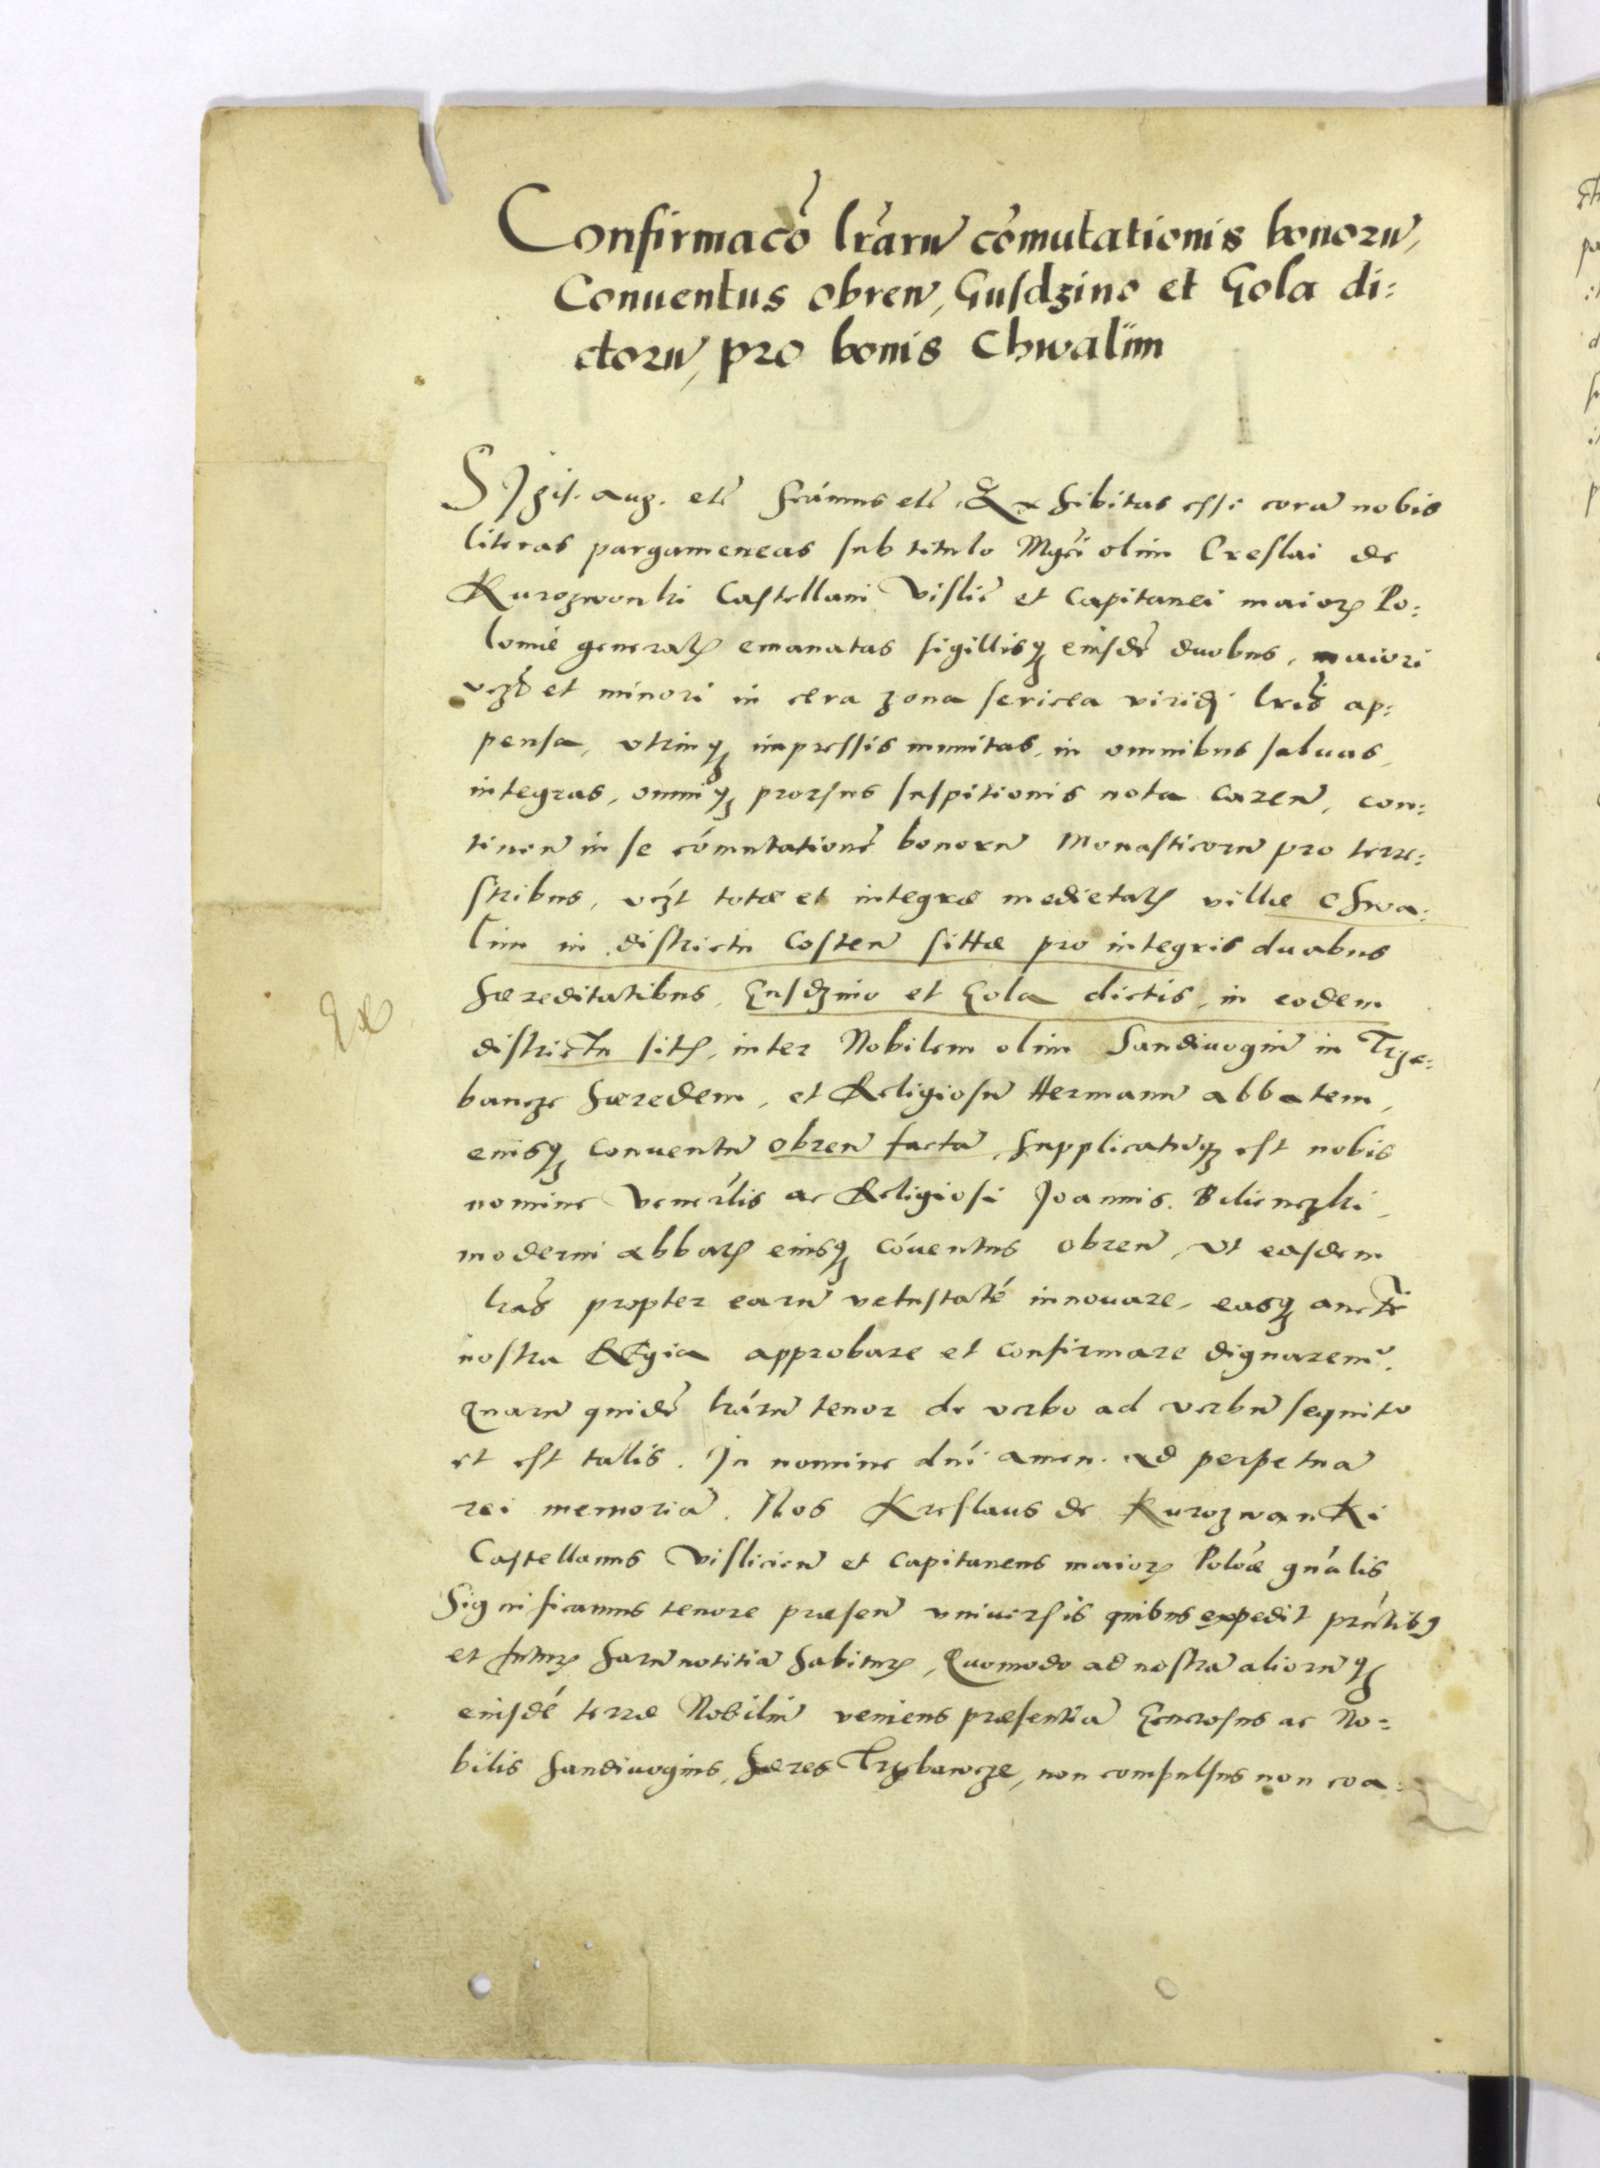 Confirmacõ lr̃arũ cõmutationis bonorũ,
Conuentus Obreñ, Gusdzino et Gola di:
ctorũ, pro bonis Chwalim
Sigis. Aug. etc̃ Significamus etc̃. Exhibitas esse corã nobis
literas pargameneas sub titulo Mgc̃i olim Creslai de
Kurozwonki Castellani Vislic̃ et Capitanei maioꝝ Po:
lonie generalꝭ emanatas sigillisqꝫ eiusdẽ duobus, maiori
vczt̃ et minori in cera zona sericea viridi lr̃is ap:
pensa, vtrinqꝫ impressis munitas, in omnibus saluas,
integras, omniqꝫ prorsus suspitionis nota careñ, con:
tineñ in se cõmutationẽ bonorũ Monasticorũ pro terre:
stribus, vczt̃ totæ et integræ medietatꝭ villæ Chwa:
lim in districtu Costeñ sittæ pro integris duabus
hæreditatibus, Gusdzino et Gola dictis, in eodem
districtu sitꝭ, inter Nobilem olim Sandiuogiũ in Trze:
bancze hæredem, et Religiosũ Hermannũ abbatem,
eiusqꝫ conuentũ Obreñ factã, supplicatũqꝫ est nobis
nomine Venerãlis ac Religiosi Joannis Bilienczki,
moderni abbatꝭ eiusqꝫ cõuentus Obreñ, Vt easdem
lr̃as propter earũ vetustatẽ innouare, easqꝫ aucte
nostra Regia approbare et confirmare dignaremꝰ.
Quarũ quidẽ lr̃arũ tenor de verbo ad verbũ sequitᷣ
et est talis. In nomine dñi amen. Ad perpetuã
rei memoriã. Nos Kreslaus de Kurozwanki
Castellanus Vislicieñ et Capitaneus maioꝝ Polõæ gnãlis
Significamus tenore præseñ vniuersis quibus expedit prñtibꝫ
et futuꝝ harũ notitiã habituꝝ, Quomodo ad nostrã aliorũqꝫ
eiusdẽ terræ Nobiliũ veniens præsentiã Generosus ac No:
bilis Sandiuogius, hæres Trzbawcze, non compulsus non coa:
Ex